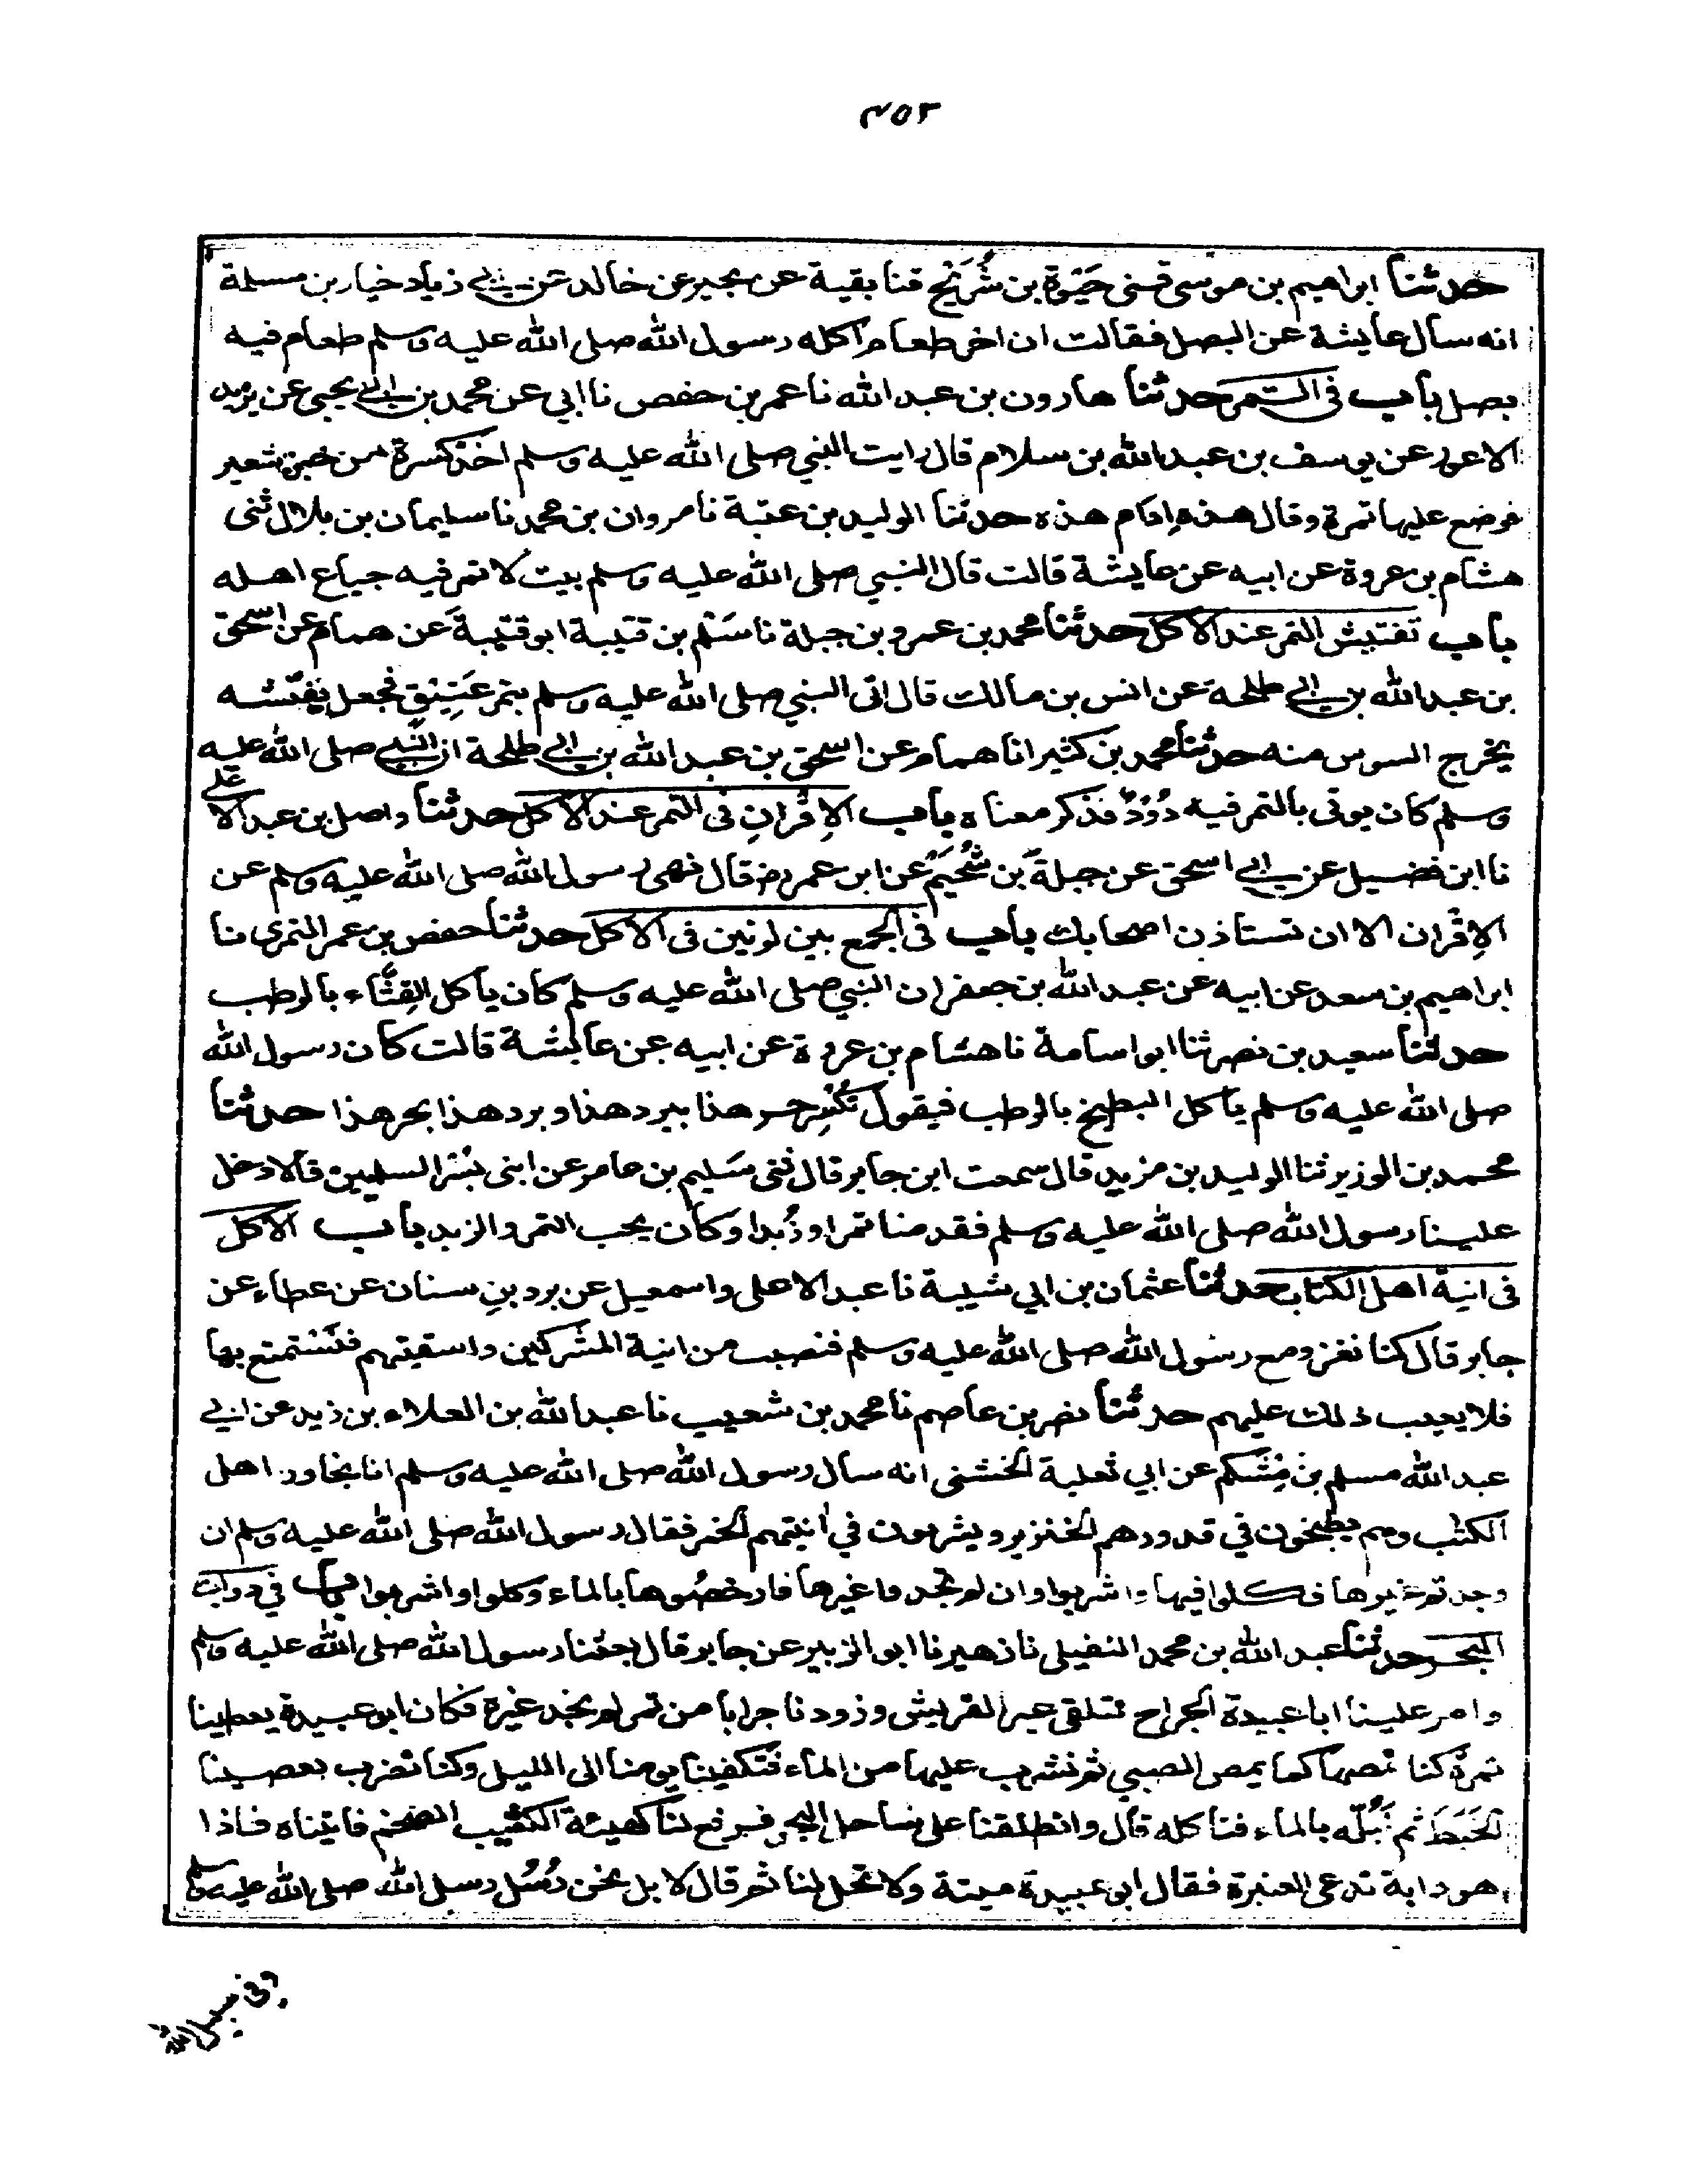 ٢٥٣
حدثنا ابراهيم بن موسى قثنى حَيْوَة بن شُرَيْح قثنا بقية عن بجير عن خالد عن ابي زياد خيار بن مسلمة
انه سال عايشة عن البصل فقالت ان اخر طعام اكله رسول الله صلى الله عليه وسلم طعام فيه
بصل باب فى التمر حدثنا هارون بن عبد الله نا عمر بن حفص نا ابي عن محمد بن ابي يحيى عن يزيد
الاعور عن يوسف بن عبد الله بن سلام قال رايت النبي صلى الله عليه وسلم اخذ كسرة من خبز شعير
فوضع عليها تمرة وقال هذه ادام هذه حدثنا الوليد بن عتبة نا مروان بن محمد نا سليمان بن بلال ثنى
هشام بن عروة عن ابيه عن عايشة قالت قال النبي صلى الله عليه وسلم بيت لا تمر فيه جياع اهله
باب تفتيش التمر عند الاكل حدثنا محمد بن عمرو بن جبلة نا سَلْم بن قتيبة ابو قتيبة عن همام عن اسحق
بن عبد الله بن ابي طلحة عن انس بن مالك قال اتى النبي صلى الله عليه وسلم بتمر عَتِيْقٍ فجعل يفتّشه
يخرج السوس منه حدثنا محمد بن كثير انا همام عن اسحق بن عبد الله بن ابي طلحة ان النبي صلى الله عليه
وسلم كان يوتى بالتمر فيه دُوْدٌ فذكر معناه باب الاِقْرانِ فى التمر عند الاكل حدثنا واصل بن عبد الاعلى
نا ابن فضيل عن ابي اسحق عن جبلة بن سُحَيْم عن ابن عمر رض قال نهى رسول الله صلى الله عليه وسلم عن
الاِقْران الا ان تستاذن اصحابك باب فى الجمع بين لونين فى الاكل حدثنا حفص بن عمر النمرى نا
ابراهيم بن سعد عن ابيه عن عبد الله بن جعفر ان النبي صلى الله عليه وسلم كان ياكل القِثّاء بالرطب
حدثنا سعيد بن نصر ثنا ابو اسامة نا هشام بن عروة عن ابيه عن عائشة قالت كان رسول الله
صلى الله عليه وسلم ياكل البطيخ بالرطب فيقول نكْسِر حر هذا ببرد هذا وبرد هذا بحر هذا حدثنا
محمد بن الوزير ثنا الوليد بن مزيد قال سمعت ابن جابر قال ثنى سَليم بن عامر عن ابنى بُسْر السلميين قالا دخل
علينا رسول الله صلى الله عليه وسلم فقدمنا تمرا وزُبدا وكان يحب التمر والزبد باب الاكل
فى انية اهل الكتاب حدثنا عثمان بن ابي شيبة نا عبد الاعلى واسمعيل عن برد بن سنان عن عطاء عن
جابر قال كنا نغزو مع رسول الله صلى الله عليه وسلم فنصيب من انية المشركين واسقيتهم فنستمتع بها
فلا يعيب ذلك عليهم حدثنا نصر بن عاصم نا محمد بن شعيب نا عبد الله بن العلاء بن زيد عن ابي
عبد الله مسلم بن مِشْكم عن ابي ثعلبة الخشنى انه سال رسول الله صلى الله عليه وسلم انا نجاور اهل
الكتٰب وهم يطبخون في قدورهم الخنزير ويشربون في انيتهم الخمر فقال رسول الله صلى الله عليه وسلم ان
وجدتم غيرها فكلوا فيها واشربوا وان لم تجدوا غيرها فارحضُوها بالماء وكلوا واشربوا باب في دواب
البحر حدثنا عبد الله بن محمد النفيلى نا زهير نا ابو الزبير عن جابر قال بعثنا رسول الله صلى الله عليه وسلم
وامر علينا ابا عبيدة الجراح نتلقى عير القريش وزودنا جرابا من تمر لم نجد غيره فكان ابو عبيدة يعطينا
تمرة كنا نمصها كما يمص الصبي ثم نشرب عليها من الماء فتكفينا يومنا الى الليل وكنا نضرب بعصينا
الخَبَط ثم نَبُلّه بالماء فناكله قال وانطلقنا على ساحل البحر فرفع لنا كهيئة الكثيب الضخم فاتيناه فاذا
هو دابة تدعى العنبرة فقال ابو عبيدة ميتة ولا تحل لنا ثم قال لا بل نحن رُسُل رسول الله صلى الله عليه وسلم
وفى سبيل الله